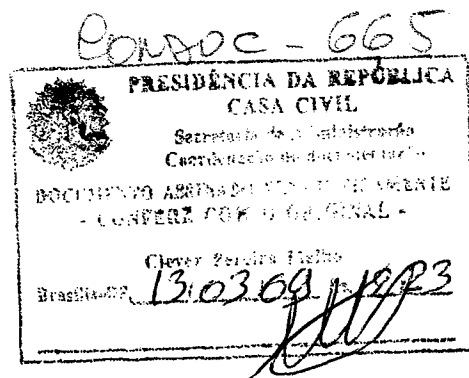 CONDOC - 665
PRESIDÊNCIA DA REPÚBLICA
CASA CIVIL
Secretaria de Administração
Coordenação de documentação
DOCUMENTO
- CONFERE COM O ORIGINAL -
Clever Pereira
Brasília-DF, 13/03/09